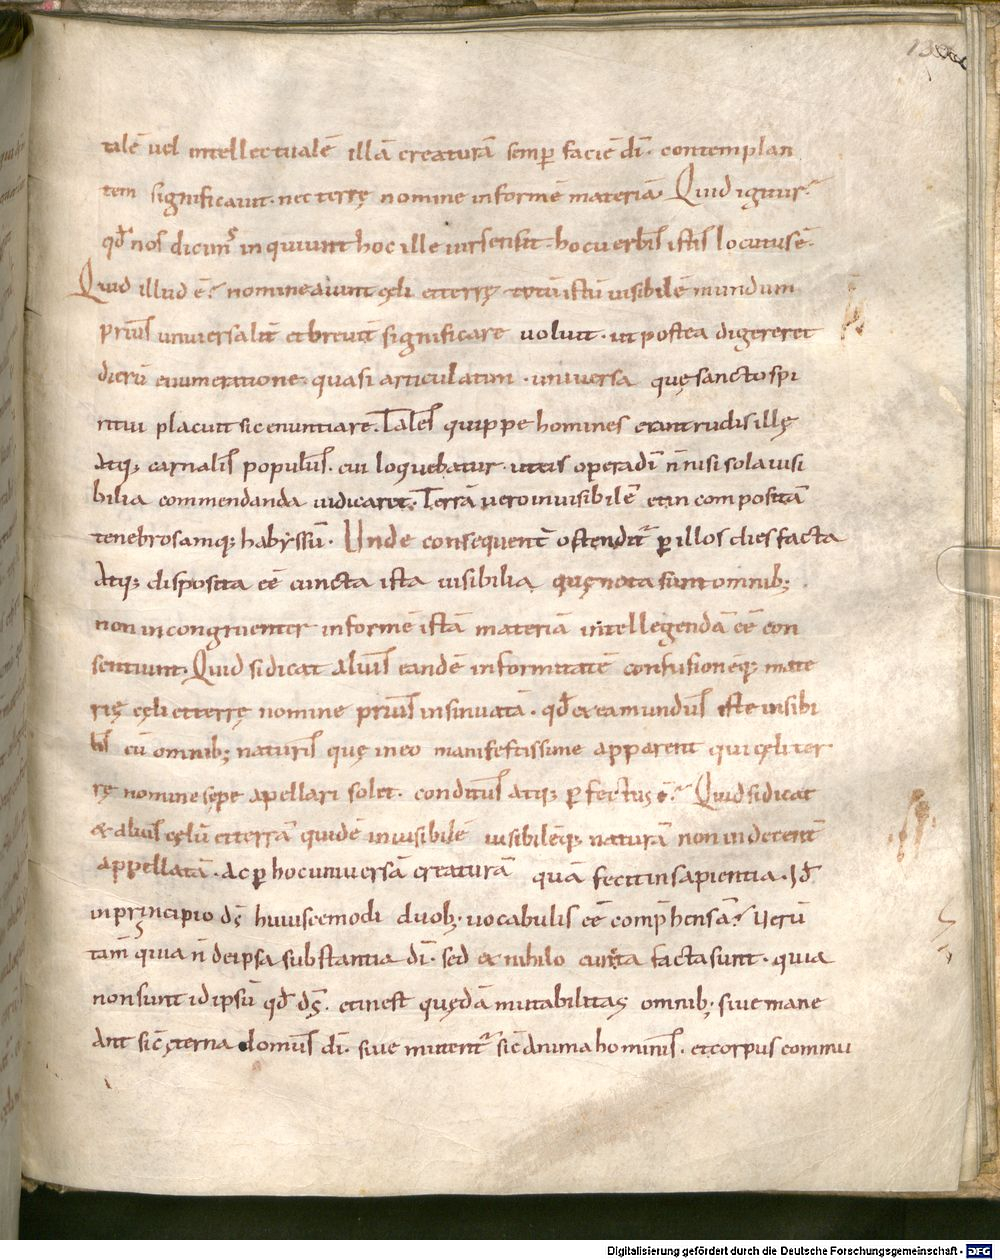 talē uel intellectualē illā creaturā semp̄ faciē dī· contemplan
tem significauit· nec terrę nomine informē materiā· Quid igitur?
qđ nos dicim᷒ inquiunt hoc ille uir sensit· hoc uerbis istis locutus ē·
Quid illud ē? nomine aiunt cęli et terrę totū istū uisibilē mundum
prius uniuersalit̄ et breuit̄ significare uoluit· ut postea digereret
dierū enumeratione· quasi articulatim· uniuersa quę sancto spi
ritui placuit sic enuntiare. Tales quippe homines erant rudis ille
atq; carnalis populus· cui loquebatur· ut eis opera dī n̄ nisi sola uisi
bilia commendanda iudicaret· Terrā uero inuisibilē et incompositā
tenebrosamq; habyssū· Unde consequent̄ ostendit᷒ p̄ illos dies facta
atq; disposita eē cuncta ista uisibilia quę nota sunt omnib;
non incongruenter informē istā materiā intellegendā eē con
sentiunt· Quid si dicat alius eandē informitatē confusionēq; mate
rię cęli et terrę nomine prius insinuatā· qđ ex ea mundus iste uisibi
lis cū omnib; naturis quę in eo manifestissime apparent qui cęli ter
rę nomine sępe apellari solet· conditus atq; p̄fectus ē? Quid si dicat
& alius cęlū et terrā quidē inuisibilē uisibilēq; naturā non indecent̄
appellatā· Ac p̄ hoc uniuersā creaturā quā fecit in sapientia· Id
in principio dś huiuscemodi duob; uocabulis eē comp̄hensā? Uerū
tam̄ quia n̄ de ipsa substantia dī· sed ex nihilo cuncta facta sunt· quia
non sunt id ipsū qđ dś· et inest quędā mutabilitas omnib; siue mane
ant sic̄ ęterna domus dī· siue mutent᷒ sic̄ anima hominis· et corpus commu
Digitalisierung gefördert durch die Deutsche Forschungsgemeinschaft - DFG